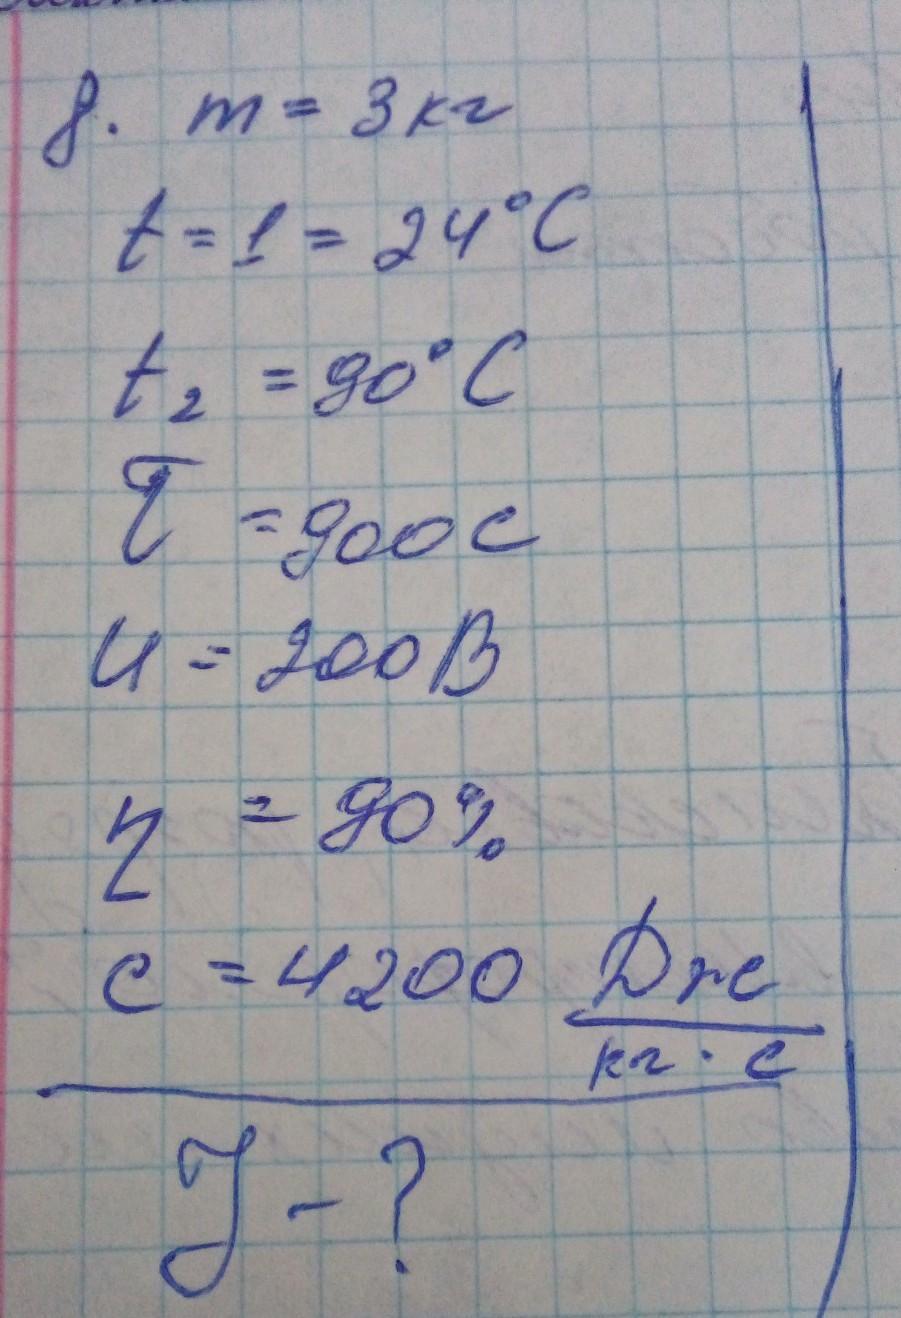 8. m = 3 кг
t = 1 = 24°C
t₂ = 90°C
τ = 900 с
U = 200 В
η = 90%
c = 4200 Дж
кг · с
J - ?